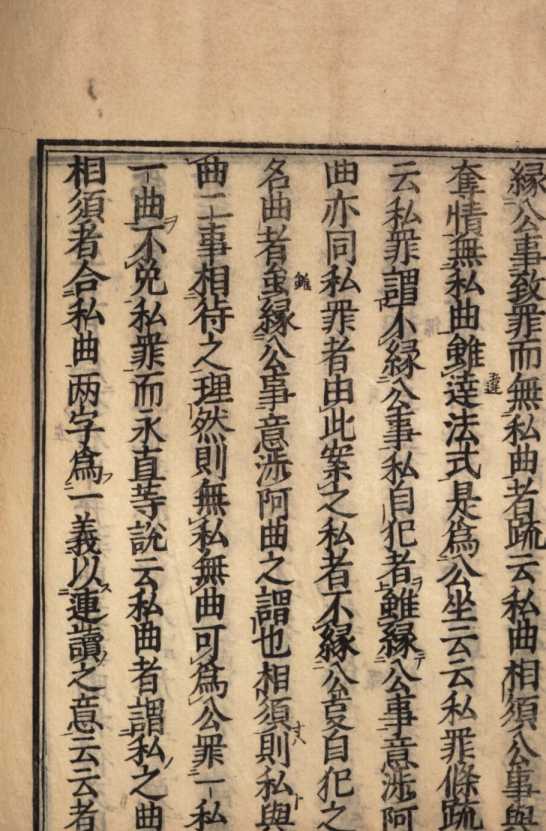 縁公事致罪而無私曲者疏云私曲相須公事與
奪情無私曲雖達法式是爲公坐云云私罪條疏
云私罪謂不縁公事私自犯者雖縁公事意渉阿
曲亦同私罪者由此案之私者不縁公事自犯之
名曲者虽縁公事意渉阿曲之謂也相須則私與
曲二事相待之理然則無私無曲可爲公罪一私
一曲不免私罪而永直等説云私曲者謂私之曲
相須者合私曲兩字爲一義以連讀之意云云者